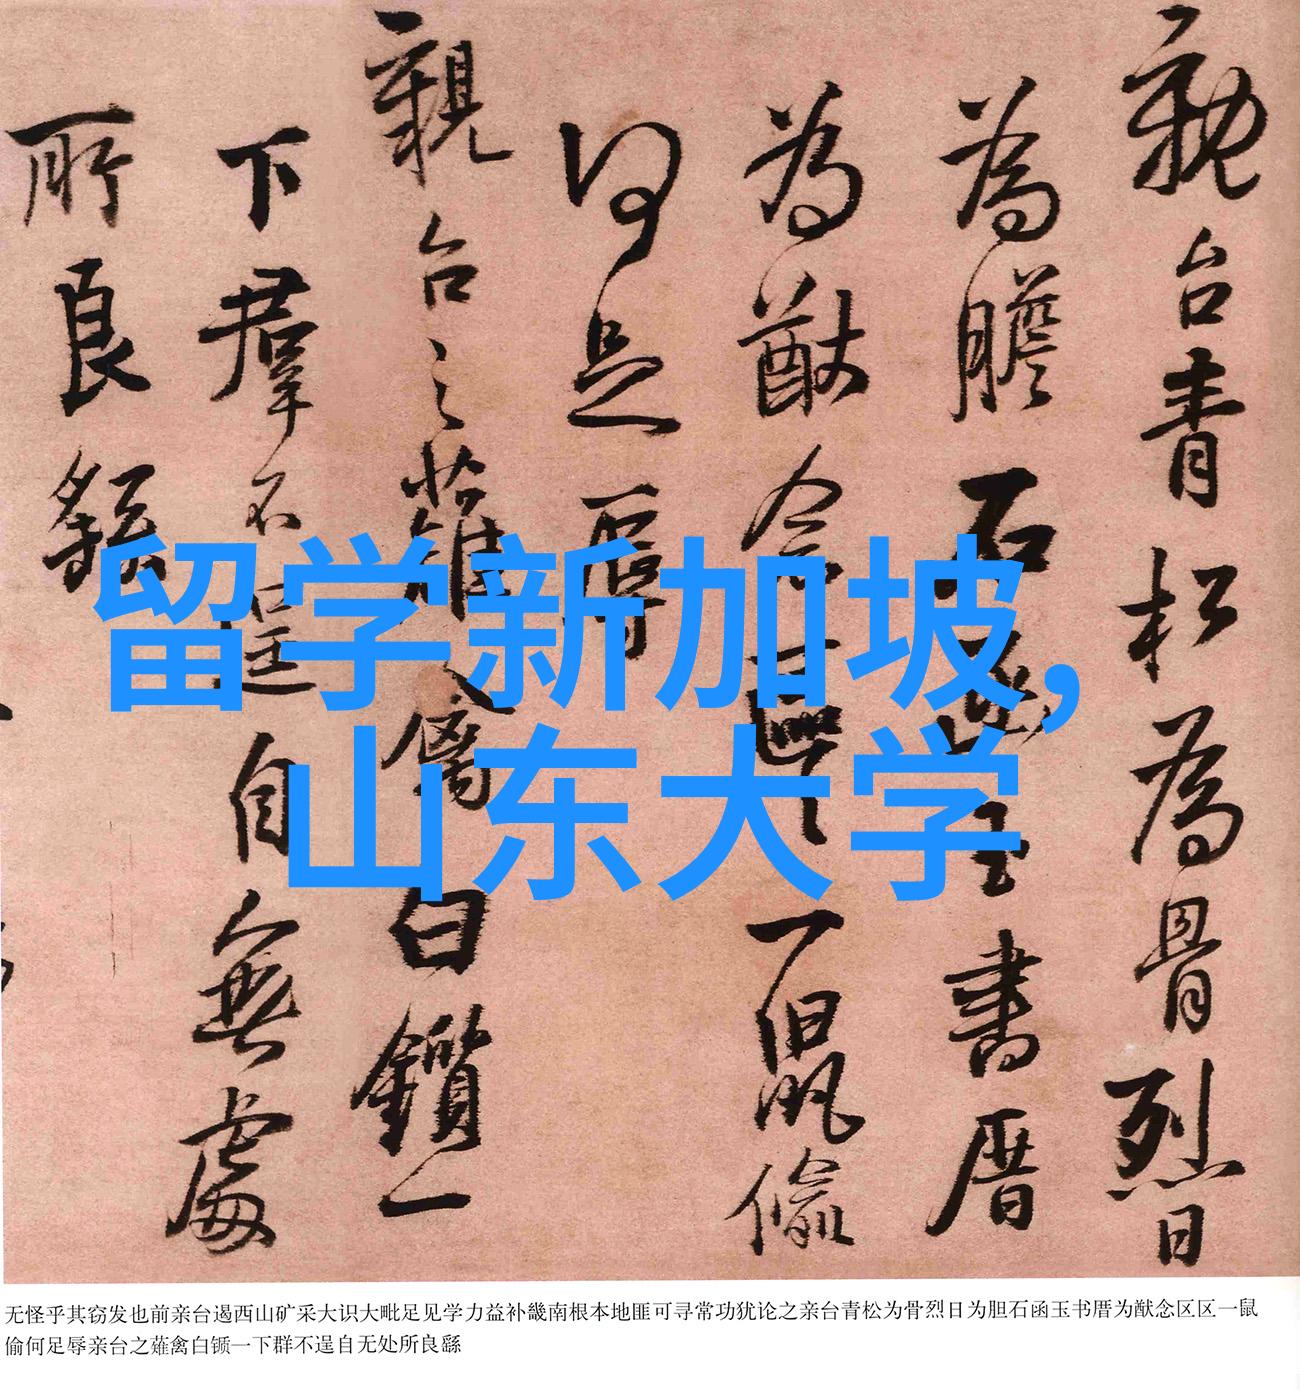 親台青松為骨烈日
為膽石函玉書厝
為猷念區區一鼠偷
何足辱
親台之薙禽白鑕一
下羣不逞自無處
所良繇
留学新加坡,
山东大学
无怪乎其窃发也前亲台遏西山矿采大识大毗足见学力益补畿南根本地匪可寻常功犹论之亲台青松为骨烈日为胆石函玉书厝为猷念区区一鼠
偷何足辱亲台之薙禽白锧一下群不逞自无处所良繇